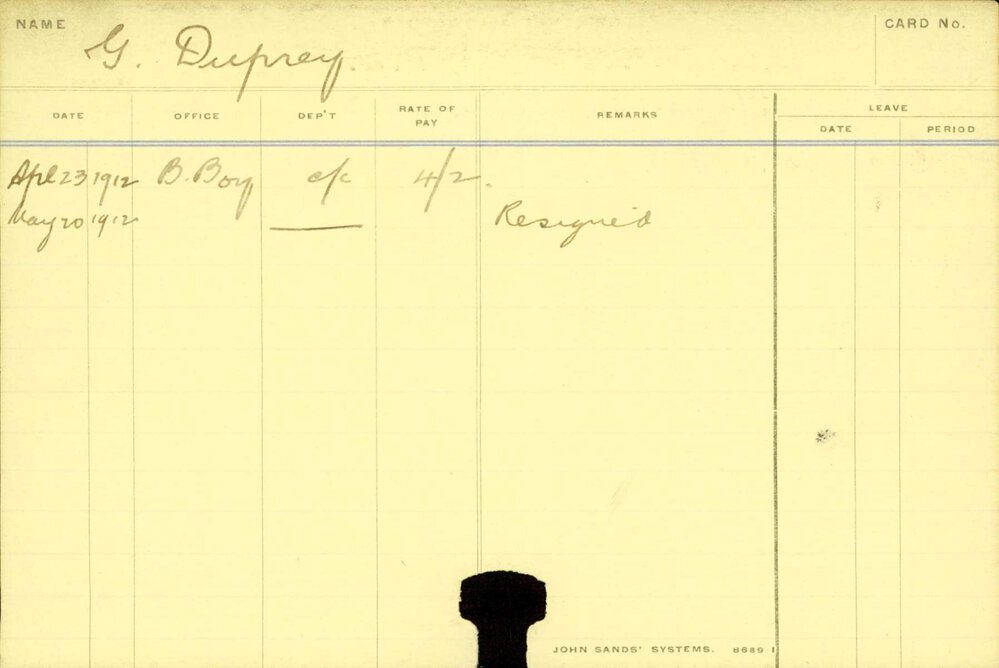 NAME G. Duprey. CARD No.
DATE OFFICE DEP'T RATE OF PAY REMARKS LEAVE
DATE PERIOD
Apl 23 1912 B. Boy c/c 4/2.
May 20 1912 Resigned
JOHN SANDS' SYSTEMS. 8689